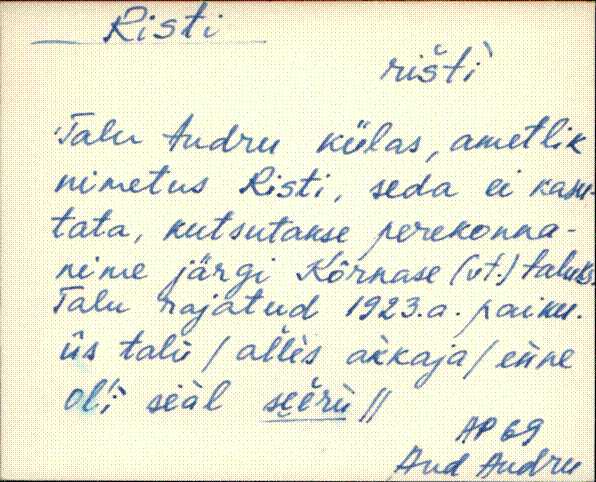 Risti
rištì̬
Talu Andru külas, ametlik
nimetus Risti, seda ei kasu-
tata, kutsutakse perekonna-
nime järgi Kõrnase (vt.) taluks.
Talu rajatud 1923.a. paiku.
ǖs talū / al̄lès ak̄kaja / en̄ne
ol̄'ì seàl see̮rū //
AP 69
And Andru